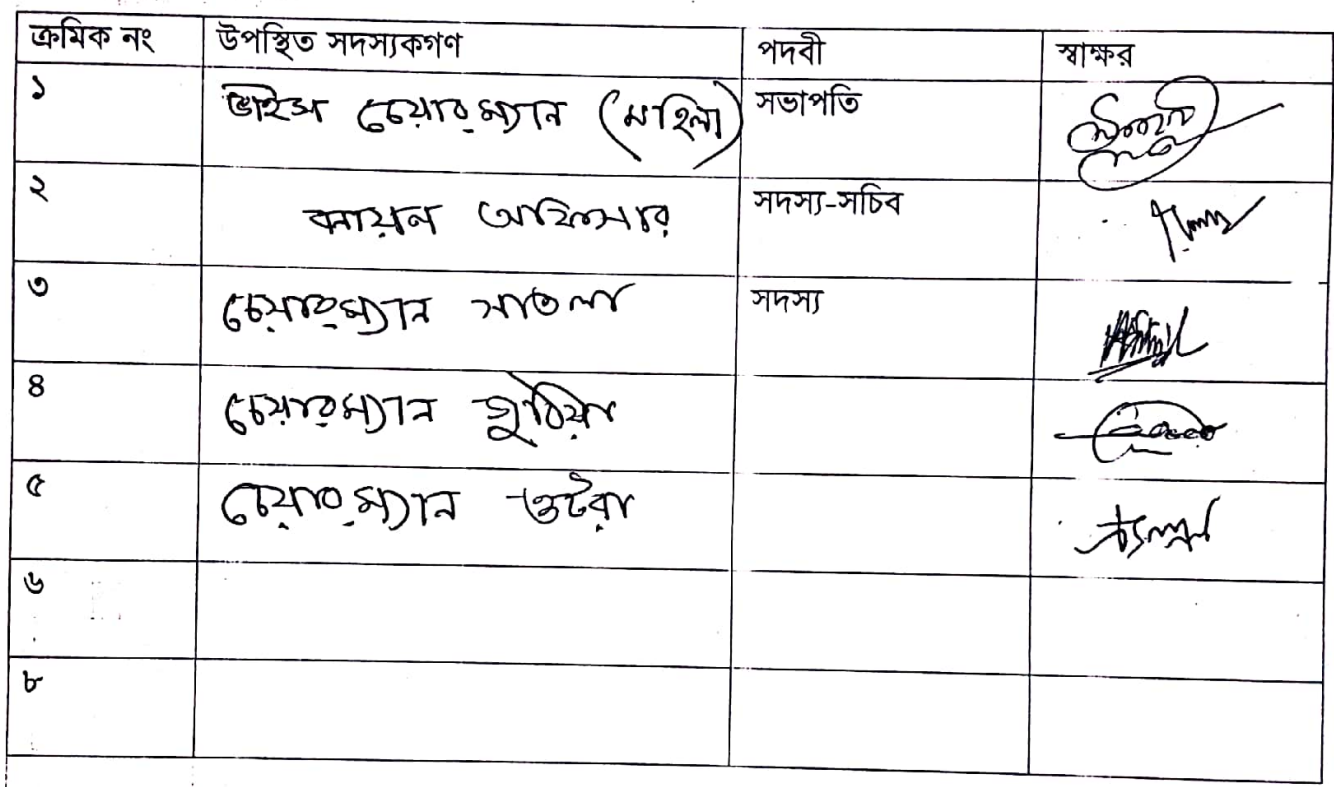 ক্রমিক নং উপস্থিত সদস্যকগণ পদবী স্বাক্ষর
১ ভাইস চেয়ারম্যান (মহিলা) সভাপতি
২ অফিসার সদস্য-সচিব
৩ চেয়ারম্যান সাতলা সদস্য
৪ চেয়ারম্যান
৫ চেয়ারম্যান ওটরা
৬
৮